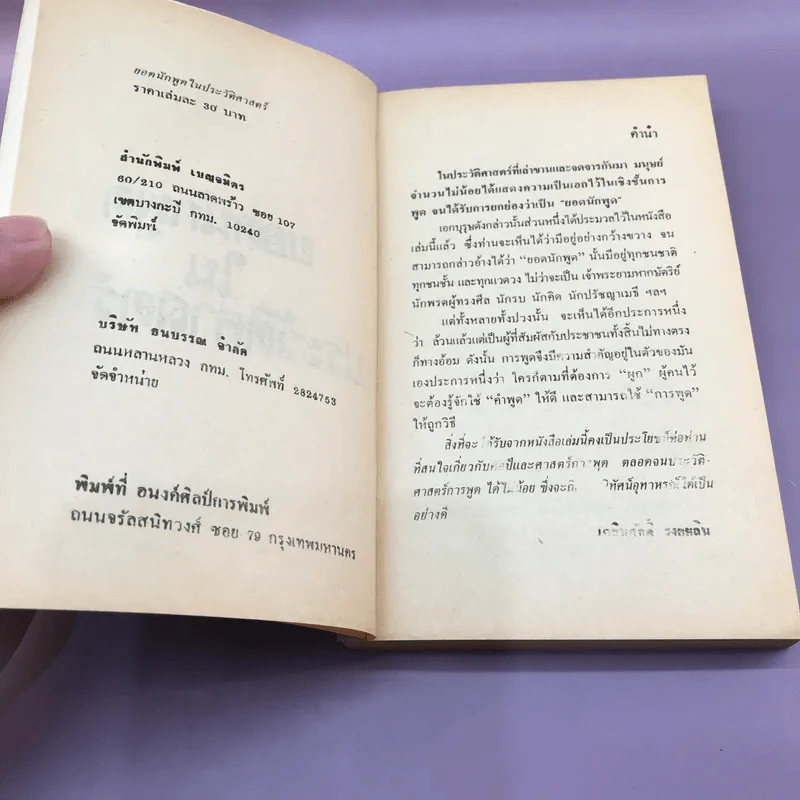 ยอดนักพูดในประวัติศาสตร์
ราคาเล่มละ 30 บาท
สำนักพิมพ์ เบญจมิตร
60/210 ถนนลาดพร้าว ซอย 107
เขตบางกะปิ กทม. 10240
จัดพิมพ์
บริษัท ธนบรรณ จำกัด
ถนนหลานหลวง กทม. โทรศัพท์ 2824753
จัดจำหน่าย
พิมพ์ที่ อนงค์ศิลป์การพิมพ์
ถนนจรัลสนิทวงศ์ ซอย 79 กรุงเทพมหานคร
คำนำ
ในประวัติศาสตร์ที่เล่าขานและจดจารกันมา มนุษย์
จำนวนไม่น้อยได้แสดงความเป็นเอกไว้ในเชิงชั้นการ
พูด จนได้รับการยกย่องว่าเป็น “ยอดนักพูด”
เอกบุรุษดังกล่าวนั้นส่วนหนึ่งได้ประมวลไว้ในหนังสือ
เล่มนี้แล้ว ซึ่งท่านจะเห็นได้ว่ามีอยู่อย่างกว้างขวาง จน
สามารถกล่าวอ้างได้ว่า “ยอดนักพูด” นั้นมีอยู่ทุกชนชาติ
ทุกชนชั้น และทุกแวดวง ไม่ว่าจะเป็น เจ้าพระยามหากษัตริย์
นักพรตผู้ทรงศีล นักรบ นักคิด นักปรัชญาเมธี ฯลฯ
แต่ทั้งหลายทั้งปวงนั้น จะเห็นได้อีกประการหนึ่ง
ว่า ล้วนแล้วแต่เป็นผู้ที่สัมผัสกับประชาชนทั้งสิ้นไม่ทางตรง
ก็ทางอ้อม ดังนั้น การพูดจึงมีความสำคัญอยู่ในตัวของมัน
เองประการหนึ่งว่า ใครก็ตามที่ต้องการ “ผูก” ผู้คนไว้
จะต้องรู้จักใช้ “คำพูด” ให้ดี และสามารถใช้ “การพูด”
ให้ถูกวิธี
สิ่งที่จะได้รับจากหนังสือเล่มนี้คงเป็นประโยชน์ต่อท่าน
ที่สนใจเกี่ยวกับศิลป์และศาสตร์การพูด ตลอดจนประวัติ-
ศาสตร์การพูด ได้ไม่น้อย ซึ่งจะถือ ทัศน์อุทาหรณ์ได้เป็น
อย่างดี